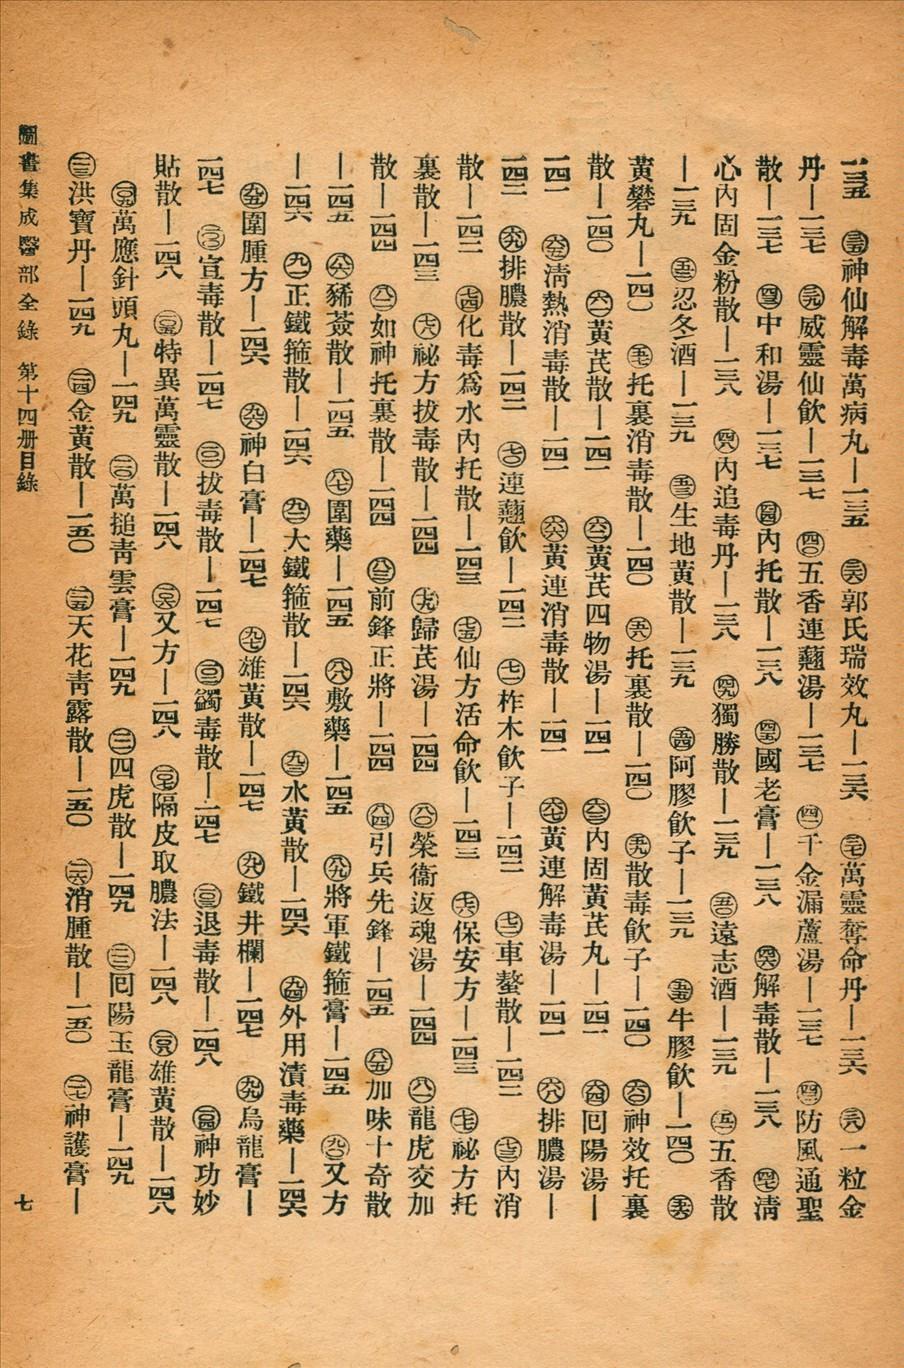 一三五　(三五)神仙解毒萬病丸—一三五　(三六)郭氏瑞效丸—一三六　(三七)萬靈奪命丹—一三六　(三八)一粒金
丹—一三七　(三九)威靈仙飲—一三七　(四〇)五香連翹湯—一三七　(四一)千金漏蘆湯—一三七　(四二)防風通聖
散—一三七　(四三)中和湯—一三七　(四四)內托散—一三八　(四五)國老膏—一三八　(四六)解毒散—一三八　(四七)淸
心內固金粉散—一三八　(四八)內追毒丹—一三八　(四九)獨勝散—一三九　(五〇)遠志酒—一三九　(五一)五香散
—一三九　(五二)忍冬酒—一三九　(五三)生地黃散—一三九　(五四)阿膠飲子—一三九　(五五)牛膠飲—一四〇　(五六)
黃礬丸—一四〇　(五七)托裏消毒散—一四〇　(五八)托裏散—一四〇　(五九)散毒飲子—一四〇　(六〇)神效托裏
散—一四〇　(六一)黃芪散—一四一　(六二)黃芪四物湯—一四一　(六三)內固黃芪丸—一四一　(六四)囘陽湯—
一四一　(六五)淸熱消毒散—一四一　(六六)黃連消毒散—一四一　(六七)黃連解毒湯—一四一　(六八)排膿湯—
一四二　(六九)排膿散—一四二　(七〇)連翹飲—一四二　(七一)柞木飲子—一四二　(七二)車螯散—一四二　(七三)內消
散—一四二　(七四)化毒爲水內托散—一四三　(七五)仙方活命飲—一四三　(七六)保安方—一四三　(七七)祕方托
裏散—一四三　(七八)祕方拔毒散—一四四　(七九)歸芪湯—一四四　(八〇)榮衞返魂湯—一四四　(八一)龍虎交加
散—一四四　(八二)如神托裏散—一四四　(八三)前鋒正將—一四四　(八四)引兵先鋒—一四五　(八五)加味十奇散
—一四五　(八六)豨薟散—一四五　(八七)圍藥—一四五　(八八)敷藥—一四五　(八九)將軍鐵箍膏—一四五　(九〇)又方
—一四六　(九一)正鐵箍散—一四六　(九二)大鐵箍散—一四六　(九三)水黃散—一四六　(九四)外用漬毒藥—一四六
(九五)圍腫方—一四六　(九六)神白膏—一四七　(九七)雄黃散—一四七　(九八)鐵井欄—一四七　(九九)烏龍膏—
一四七　(一〇〇)宣毒散—一四七　(一〇一)拔毒散—一四七　(一〇二)蠲毒散—一四七　(一〇三)退毒散—一四八　(一〇四)神功妙
貼散—一四八　(一〇五)特異萬靈散—一四八　(一〇六)又方—一四八　(一〇七)隔皮取膿法—一四八　(一〇八)雄黃散—一四八
(一〇九)萬應針頭丸—一四九　(一一〇)萬搥靑雲膏—一四九　(一一一)四虎散—一四九　(一一二)囘陽玉龍膏—一四九
(一一三)洪寶丹—一四九　(一一四)金黃散—一五〇　(一一五)天花靑露散—一五〇　(一一六)消腫散—一五〇　(一一七)神護膏—
圖書集成醫部全錄　第十四册目錄　七